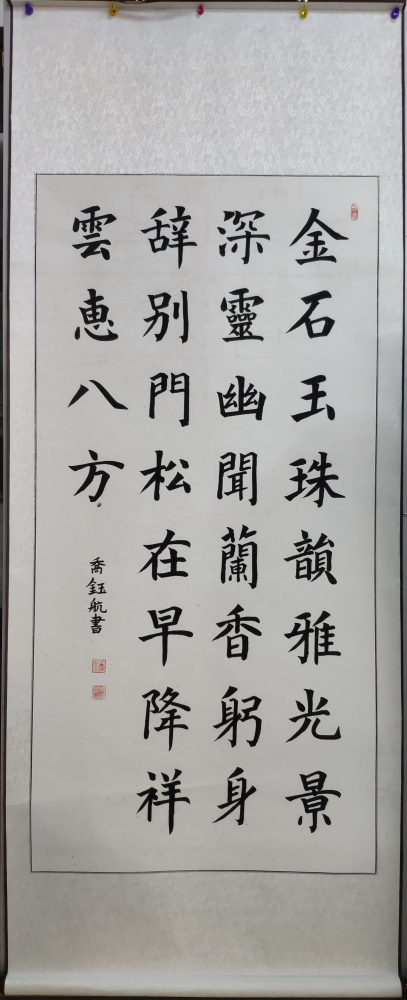 金石玉珠韻雅光景
深靈幽聞蘭香躬身
辞別門松在早降祥
雲惠八方
喬鈺航書